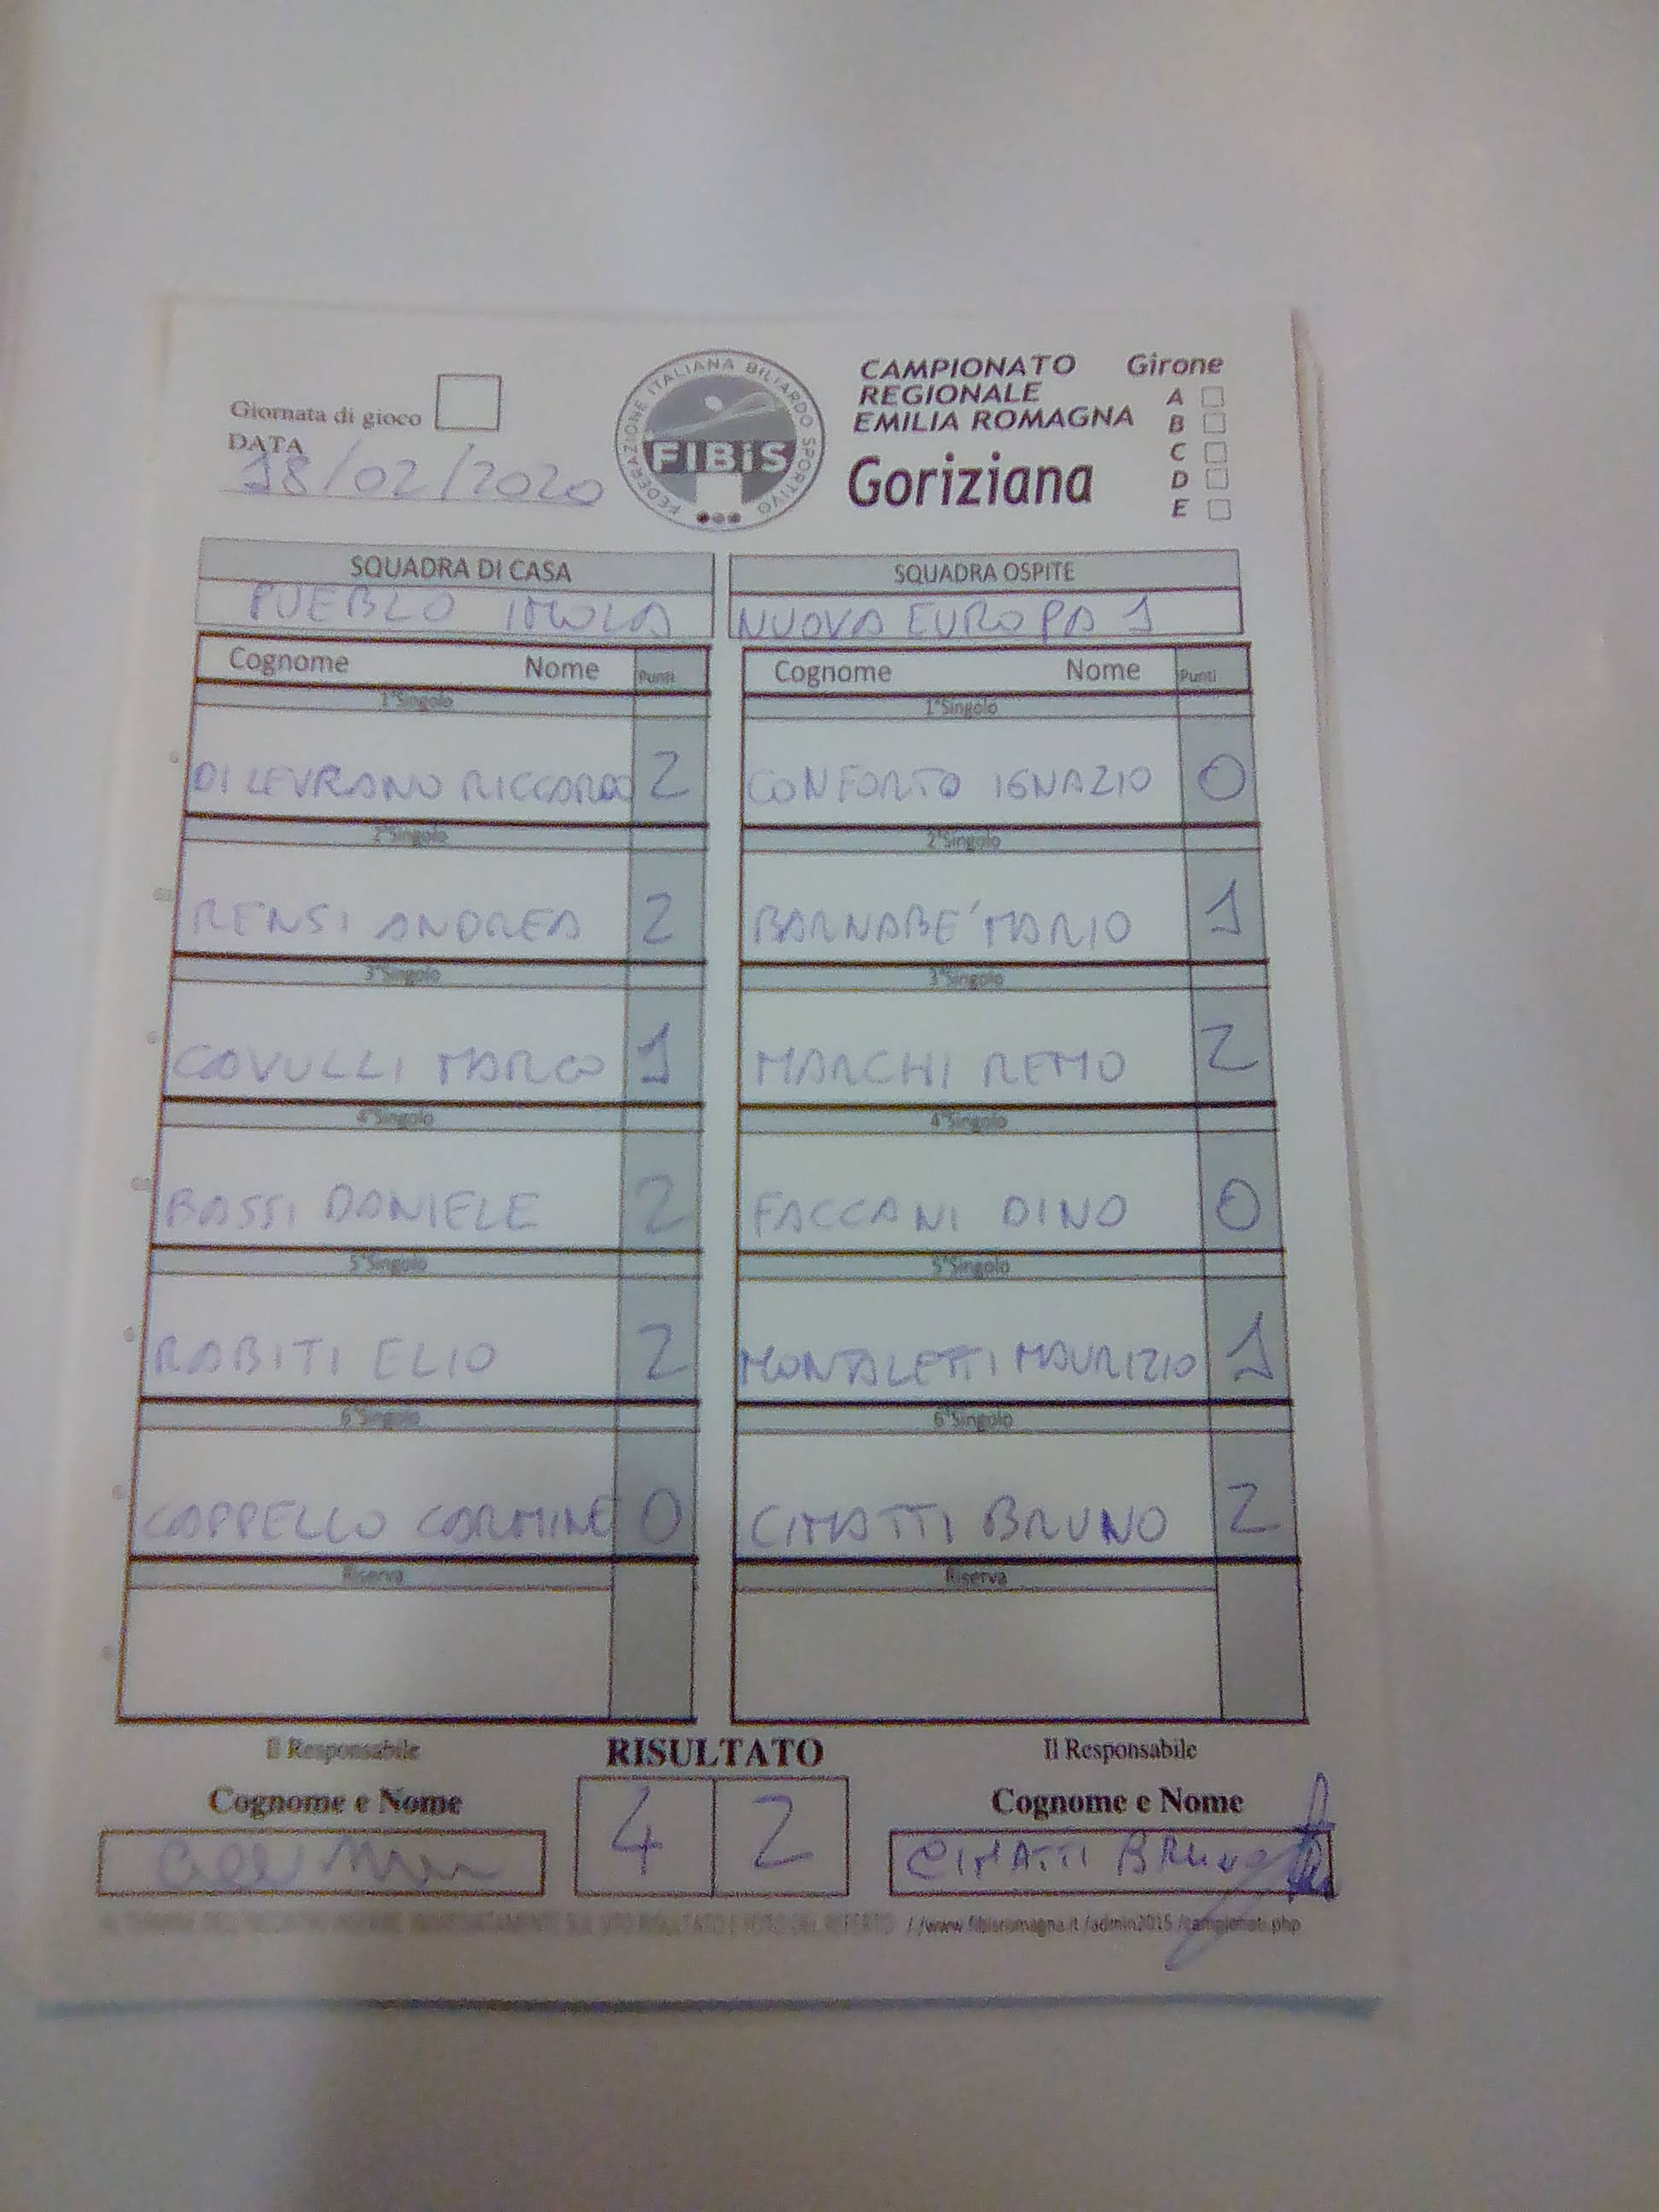 Giornata di gioco
DATA
18/02/2020
FEDERAZIONE ITALIANA BILIARDO SPORTIVO
FIBiS
CAMPIONATO
REGIONALE
EMILIA ROMAGNA
Goriziana
Girone
A
B
C
D
E
SQUADRA DI CASA
PUEBLO IMOLA
Cognome Nome Punti
1°Singolo
DI LEVRANO RICCARDO 2
2°Singolo
RENSI ANDREA 2
3°Singolo
CAVULLI MARCO 1
4°Singolo
BASSI DANIELE 2
5°Singolo
RABITI ELIO 2
6°Singolo
CAPPELLO CARMINE 0
Riserva
SQUADRA OSPITE
NUOVA EUROPA 1
Cognome Nome Punti
1°Singolo
CONFORTO IGNAZIO 0
2°Singolo
BARNABE' MARIO 1
3°Singolo
MARCHI REMO 2
4°Singolo
FACCANI DINO 0
5°Singolo
MONTALETTI MAURIZIO 1
6°Singolo
CIMATTI BRUNO 2
Riserva
Il Responsabile
Cognome e Nome
RISULTATO
4 2
Il Responsabile
Cognome e Nome
CIMATTI BRUNO
//www.fibisromagna.it/admin2015/campionati.php